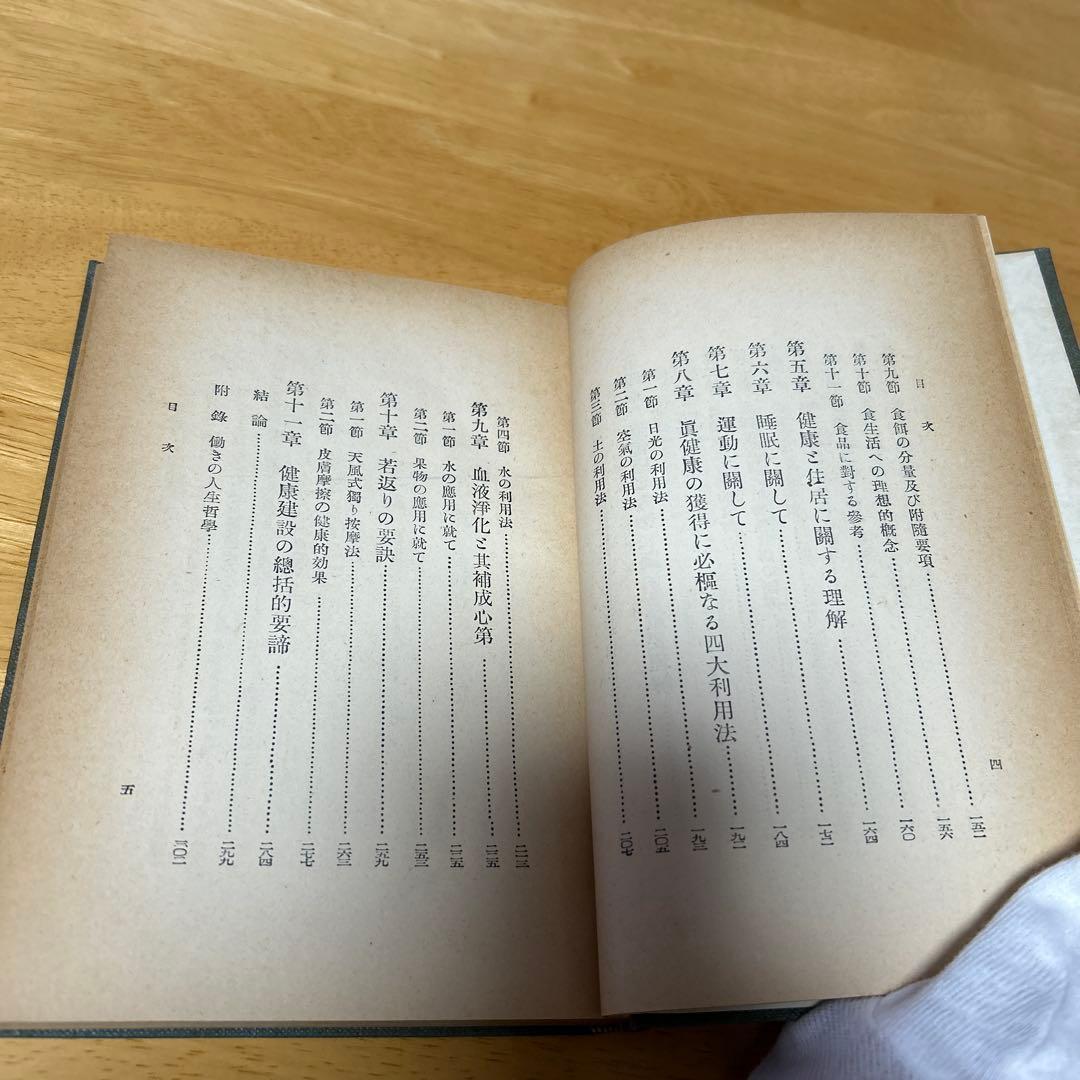 目次
第九節 食餌の分量及び附隨要項……一五二
第十節 食生活への理想的概念……一五六
第十一節 食品に對する參考……一六〇
第五章 健康と住居に關する理解……一六四
第六章 睡眠に關して……一七二
第七章 運動に關して……一八四
第八章 眞健康の獲得に必樞なる四大利用法……一九二
第一節 日光の利用法……一九三
第二節 空氣の利用法……二〇五
第三節 土の利用法……二〇七
四
第四節 水の利用法……二一三
第九章 血液淨化と其補成心第……二三五
第一節 水の應用に就て……二三五
第二節 果物の應用に就て……二五三
第十章 若返りの要訣……二五九
第一節 天風式獨り按摩法……二六三
第二節 皮膚摩擦の健康的効果……二七七
第十一章 健康建設の總括的要諦……二八四
結論……二九九
附錄 働きの人生哲學……三〇一
目次
五